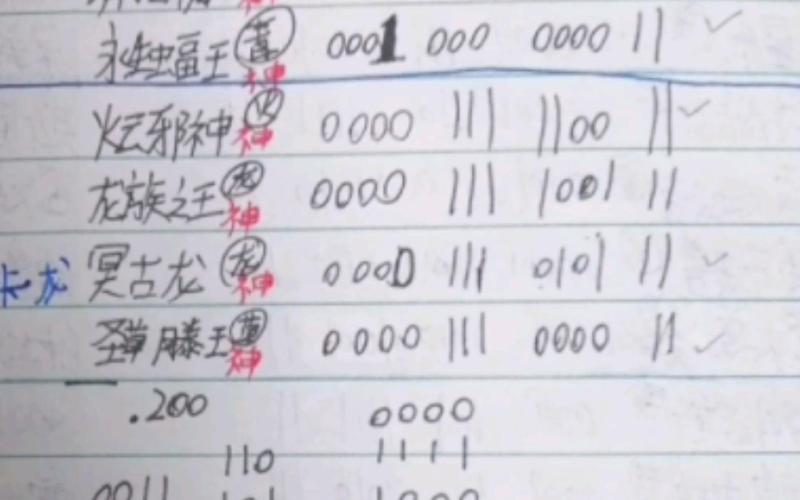 永蝕蝠王 神 0001 000 0000 11
炫邪神 火 神 0000 111 1100 11
龙族之王 龙 神 0000 111 1001 11
龙 冥古龙 龙 神 0000 111 0101 11
圣草藤王 草 神 0000 111 0000 11
.200 0000
110 1111
0011